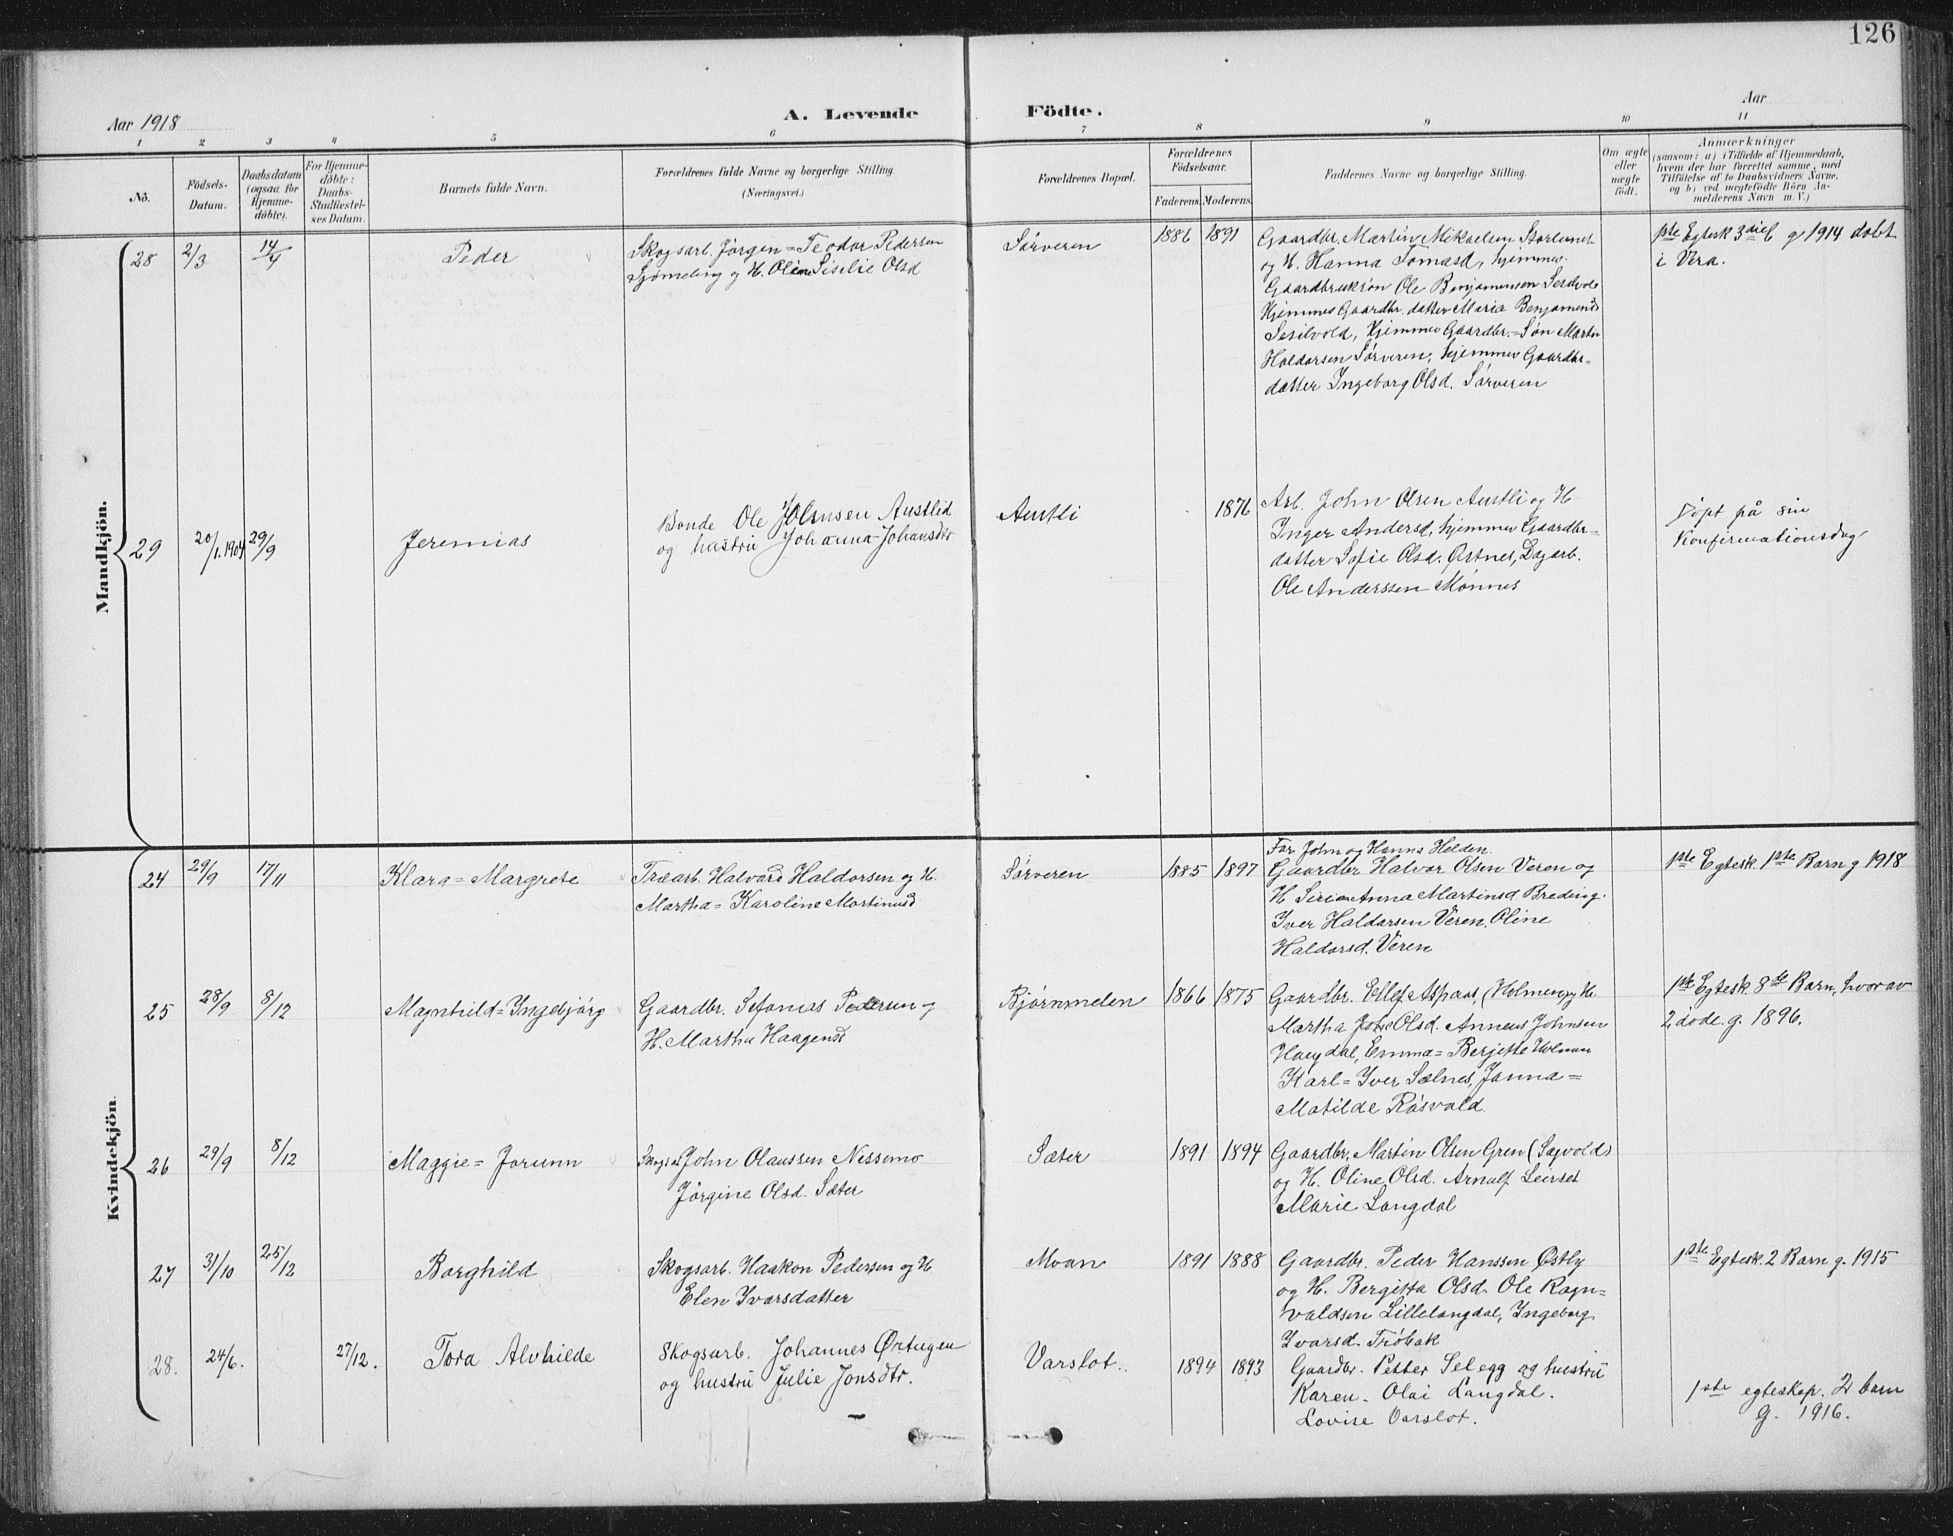 126
Aar 1918
A. Levende
Födte.
Aar
1 2 3 4 5 6 7 8 9 10 11
No.
Födsels-
Datum.
Daabsdatum
(ogsaa for
Hjemme-
döbte).
For Hjemme-
döbte:
Daabs-
Stadfæstel-
ses Datum.
Barnets fulde Navn.
Forældrenes fulde Navne og borgerlige Stilling.
(Næringsvei.)
Forældrenes Bopæl.
Forældrenes
Födselsaar.
Faderens.
Moderens.
Faddernes Navne og borgerlige Stilling.
Om ægte
eller
uægte
födt.
Anmærkninger
(saasom: a) i Tilfælde af Hjemmedaab,
hvem der har forrettet samme, med
Tilföielse af to Daabsvidners Navne,
og b) ved uægtefödte Börn An-
melderens Navn m. V.)
Mandkjön.
28 2/3 14/4 Peder
Skogsarb. Jörgen=Teodor Pedersen
og H. Oline Siselie Olsd
Sørveren
1886 1891
Gaardbr. Martin Mikaelsen
og H. Hanna Tomasd, hjemmev.
Gaardbruksön Ole Benjaminsen
Hjemmev Gaardbr. datter Maria Benjamensd
Hjemmev Gaardbr.=Søn
Haldorsen Sørveren, hjemmev Gaardbr-
datter Ingeborg Olsd. Sørveren
1ste Egtesk 3die b g 1914 døbt
i Vera.
29 20/1.1904 29/9 Jeremias
Bonde Ole Johnsen Austlid
og hustru Johanna Johansdtr
Austli
1876
Arb. John Olsen Austli og H
Inger Andersd, hjemmev Gaardbr=
datter Sofie Olsd. Østnes, Dagarb.
Ole Anderssen Mønnes
Döpt på sin
Konfirmationsdag
Kvindekjön.
24 29/9 17/11 Klara=Margrete
Træarb. Halvard Haldorsen og H.
Martha=Karoline Martinusd
Sørveren
1885 1897
Far John og Hanna Helden.
Gaardbr Halvor Olsen Veren og
H Anna Martinsd
Iver Haldorsen Veren, Oline
Haldorsd. Veren
1ste Egtesk 1ste Barn g 1918
25 28/9 8/12 Magnhild=Ingebjörg
Gaardbr. Sefanias Pedersen og
H. Martha Haagensd
Bjørnmelen
1866 1875
Gaardbr. Ellef Aspaas, (Holmen) og H.
Martha Olsd. Anneus Johnsen
Emma=Berjette Holmen
Karl=Iver Sælnes, Janna=
Matilde Råsvold
1ste Egtesk. 8de Barn, hvorav
2 døde. g. 1896.
26 29/9 8/12 Maggie=Jorunn
John Olaussen Nessemo
Jørgine Olsd. Sæter
Sæter
1891 1894
Gaardbr. Martin Olsen Gren (Sagvold)
og H. Oline Olsd. Arnulf Leirset
Marie Langdal
27 31/10 25/12 Borghild
Skogsarb. Haakon Pedersen og H
Elen Ivarsdatter
Moan
1891 1888
Gaardbr. Peder Hanssen Østby
og H. Bergitta Olsd. Ole Ragn=
valdsen Lillelangdal, Ingeborg
Ivarsd. Tröbak
1ste Egtesk. 2 Barn g. 1915
28. 24/6. 27/12. Tora Alvhilde
Skogsarb. Johannes Ørtugen
og hustru Julie Jonsdtr.
Varslot.
1894 1893
Gaardbr. Petter Selegg og hustru
Karen. Olai Langdal.
Lovise Varslot.
1ste egteskap. 2 barn
g. 1916.